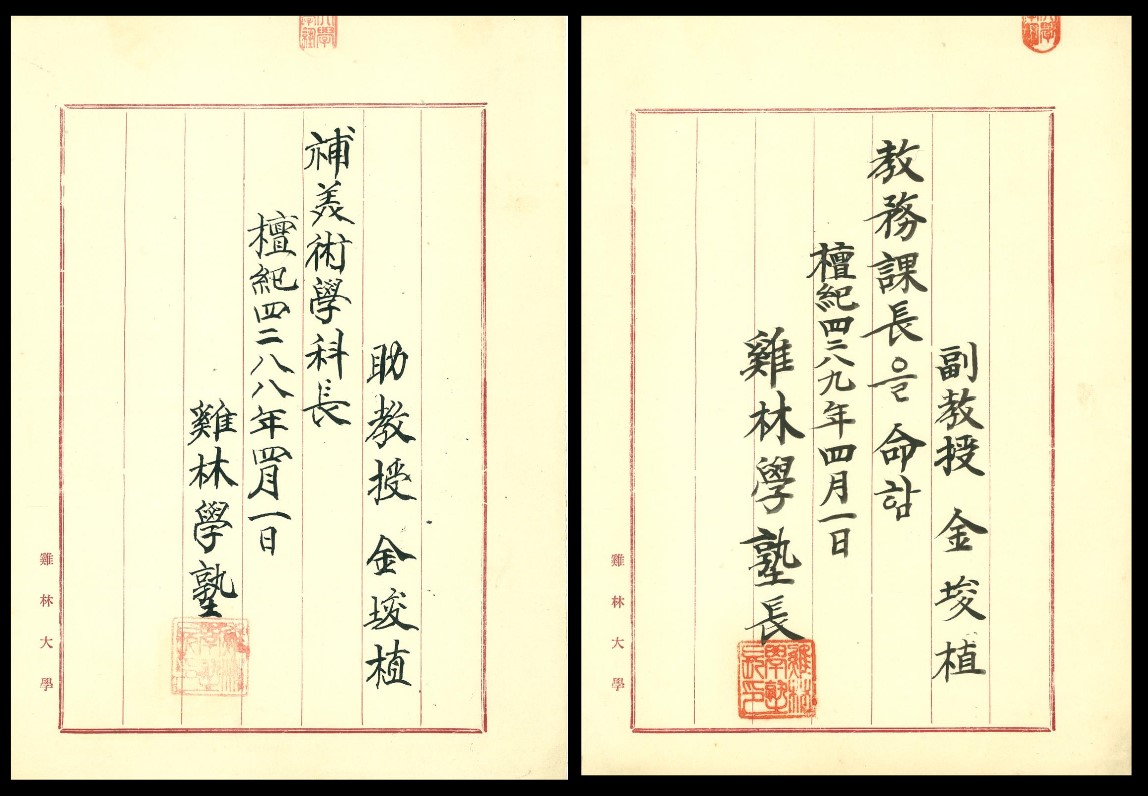 助教授 金埈植
補美術學科長
檀紀四二八八年四月一日
雞林學塾
雞林大學
副教授 金埈植
教務課長을 命함
檀紀四二八九年四月一日
雞林學塾長
雞林學塾長印
雞林大學